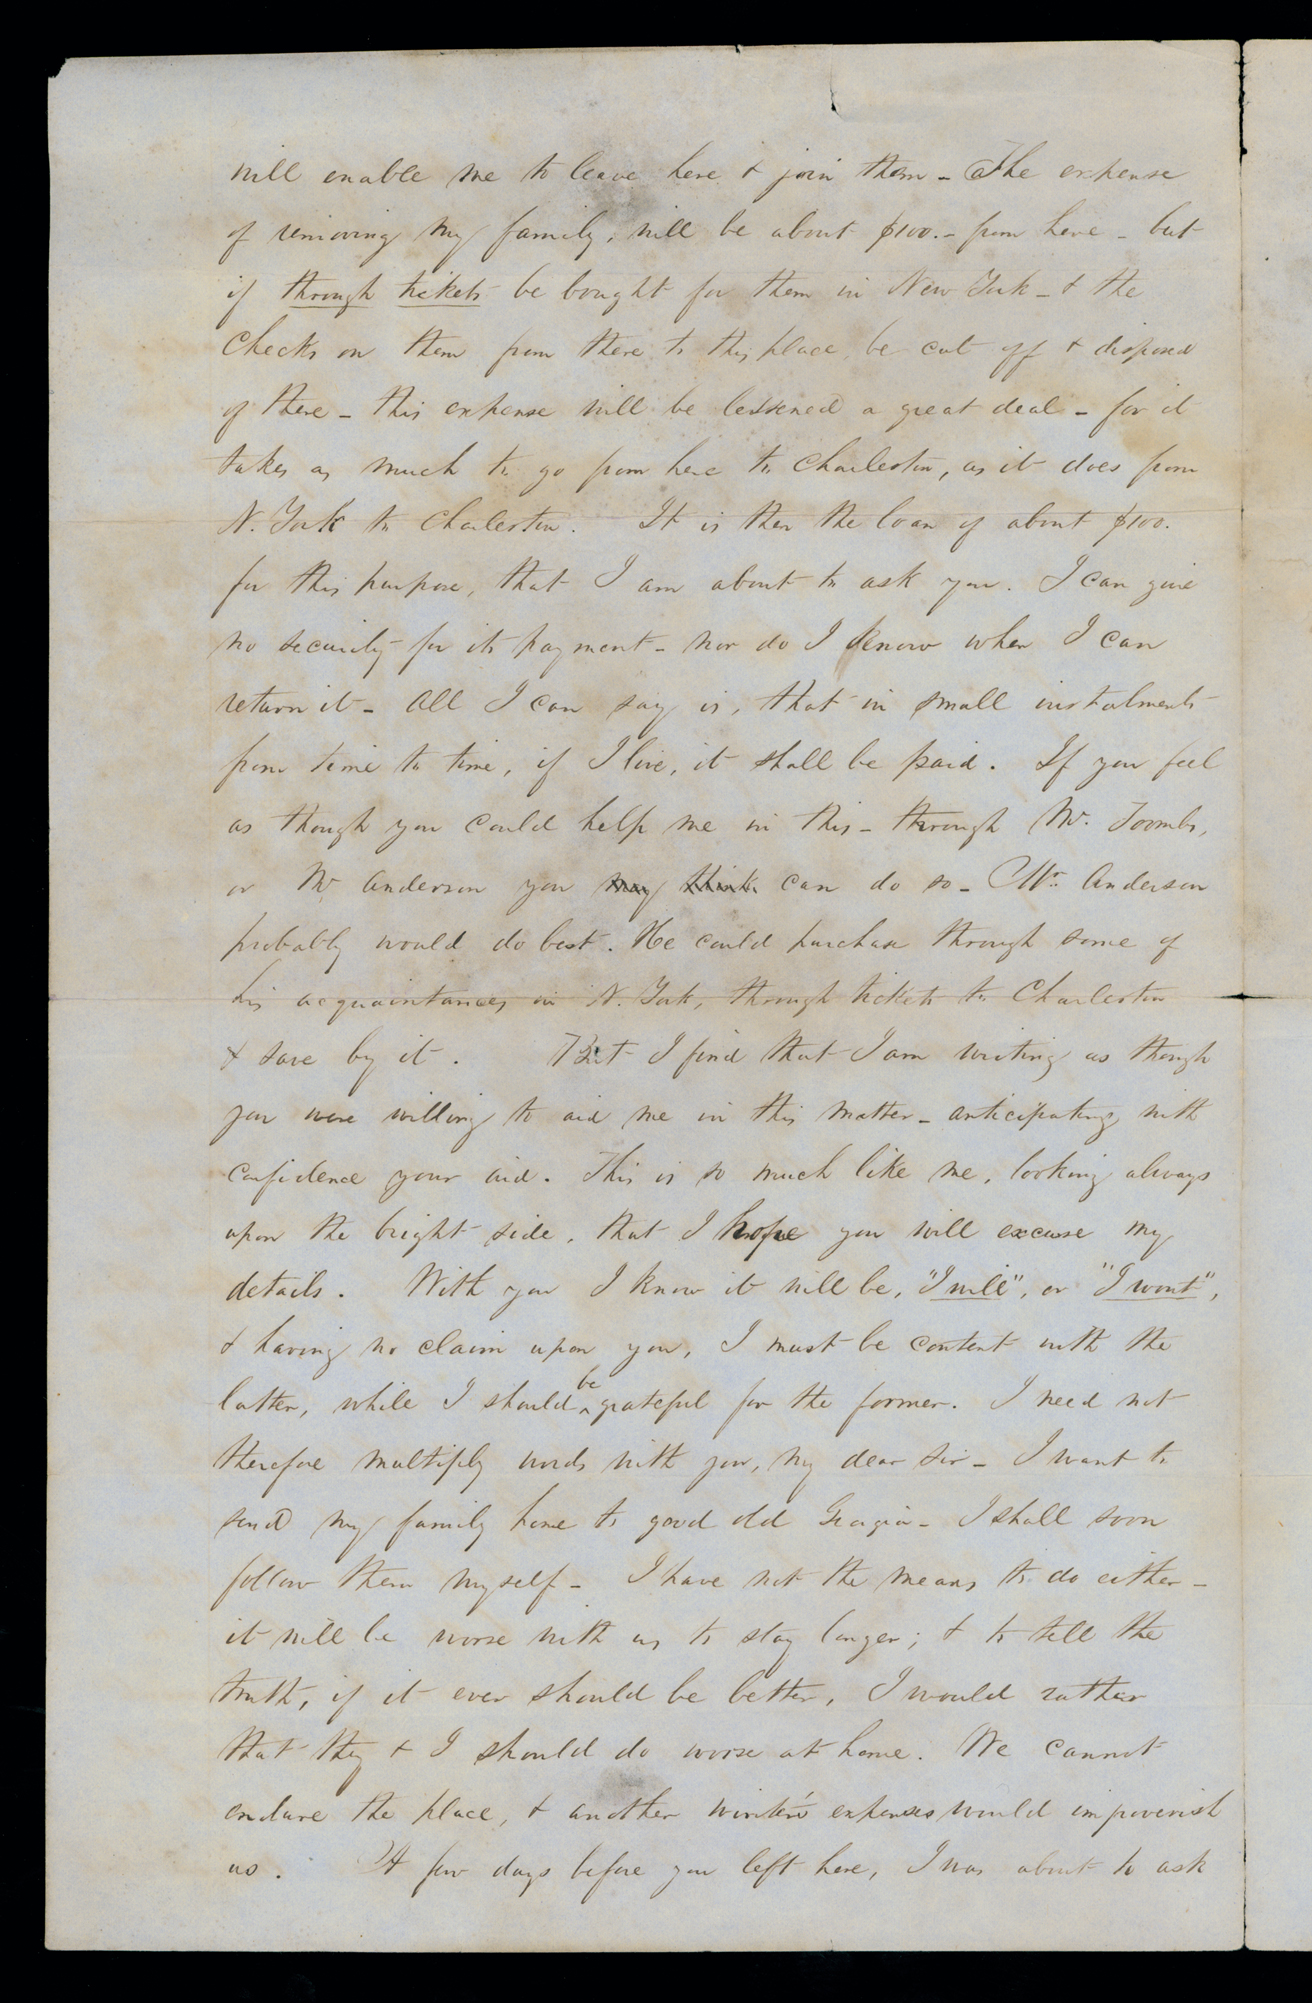 will enable me to leave here & join them - The expense
of removing my family, will be about $100. - from here - but
if through tickets be bought for them in New York - & the
checks on them from there to this place be cut off & disposed
of there - this expense will be lessened a great deal - for it
takes as much to go from here to Charleston, as it does from
N. York to Charleston. It is then the loan of about $100.
for this purpose, that I am about to ask you. I can give
no security for its payment - nor do I know when I can
return it - All I can say is, that in small instalments
from time to time, if I live, it shall be paid. If you feel
as though you could help me in this - through Mr. Toombs,
or Mr Anderson you may think can do so - Mr. Anderson
probably would do best. He could purchase through some of
his acquaintances in N. York, through tickets to Charleston
& save by it. But I find that I am writing as though
you were willing to aid me in this matter - anticipating with
confidence your aid. This is so much like me, looking always
upon the bright side, that I hope you will excuse my
details. With you I know it will be, "I will", or "I wont",
& having no claim upon you, I must be content with the
latter, while I should be grateful for the former. I need not
therefore multiply words with you, my dear sir - I want to
send my family home to good old Georgia - I shall soon
follow them myself - I have not the means to do either -
it will be worse with us to stay longer; & to tell the
truth, if it ever should be better, I would rather
that they & I should do worse at home. We cannot
endure the place, & another winter's expenses would impoverish
us. A few days before you left here, I was about to ask